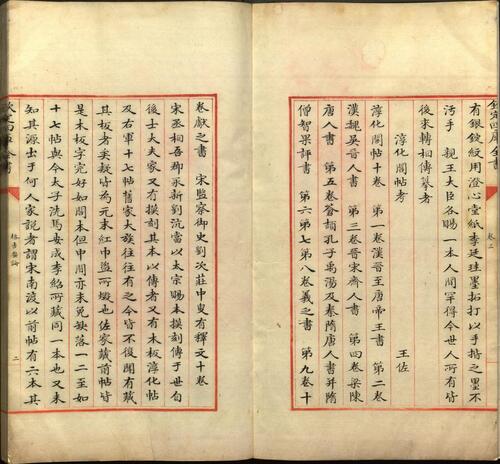 欽定四庫全書
卷三
有銀錠紋用澄心堂紙李廷珪墨拓打以手揩之墨不
汚手　親王大臣各賜一本人間罕得今世人所有皆
後來轉相傳摹者
淳化閣帖考　王佐
淳化閣帖十卷　第一卷漢晉至唐帝王書　第二卷
漢魏吳晉人書　第三卷晉宋齊人書　第四卷梁陳
唐人書　第五卷蒼頡孔子禹湯及秦隋唐人書并隋
僧智果評書　第六第七第八卷羲之書　第九卷十
卷獻之書　宋監察御史劉次莊中叟有釋文十卷
宋丞相吾郡承新劉沆當以太宗賜本摸刻傳于世自
後士大夫家又有摸刻其本以傳者又有木板淳化帖
及右軍十七帖舊家大族往往有之今皆不復聞有蔵
其板者矣疑皆為元末紅巾盜所燬也佐家蔵前帖皆
是木板字完好如閣本但中間亦未免缺落一二至如
十七帖與今太子洗馬安成李紹所蔵同一本也又未
知其源出于何人家說者謂宋南渡以前帖有六本其
二